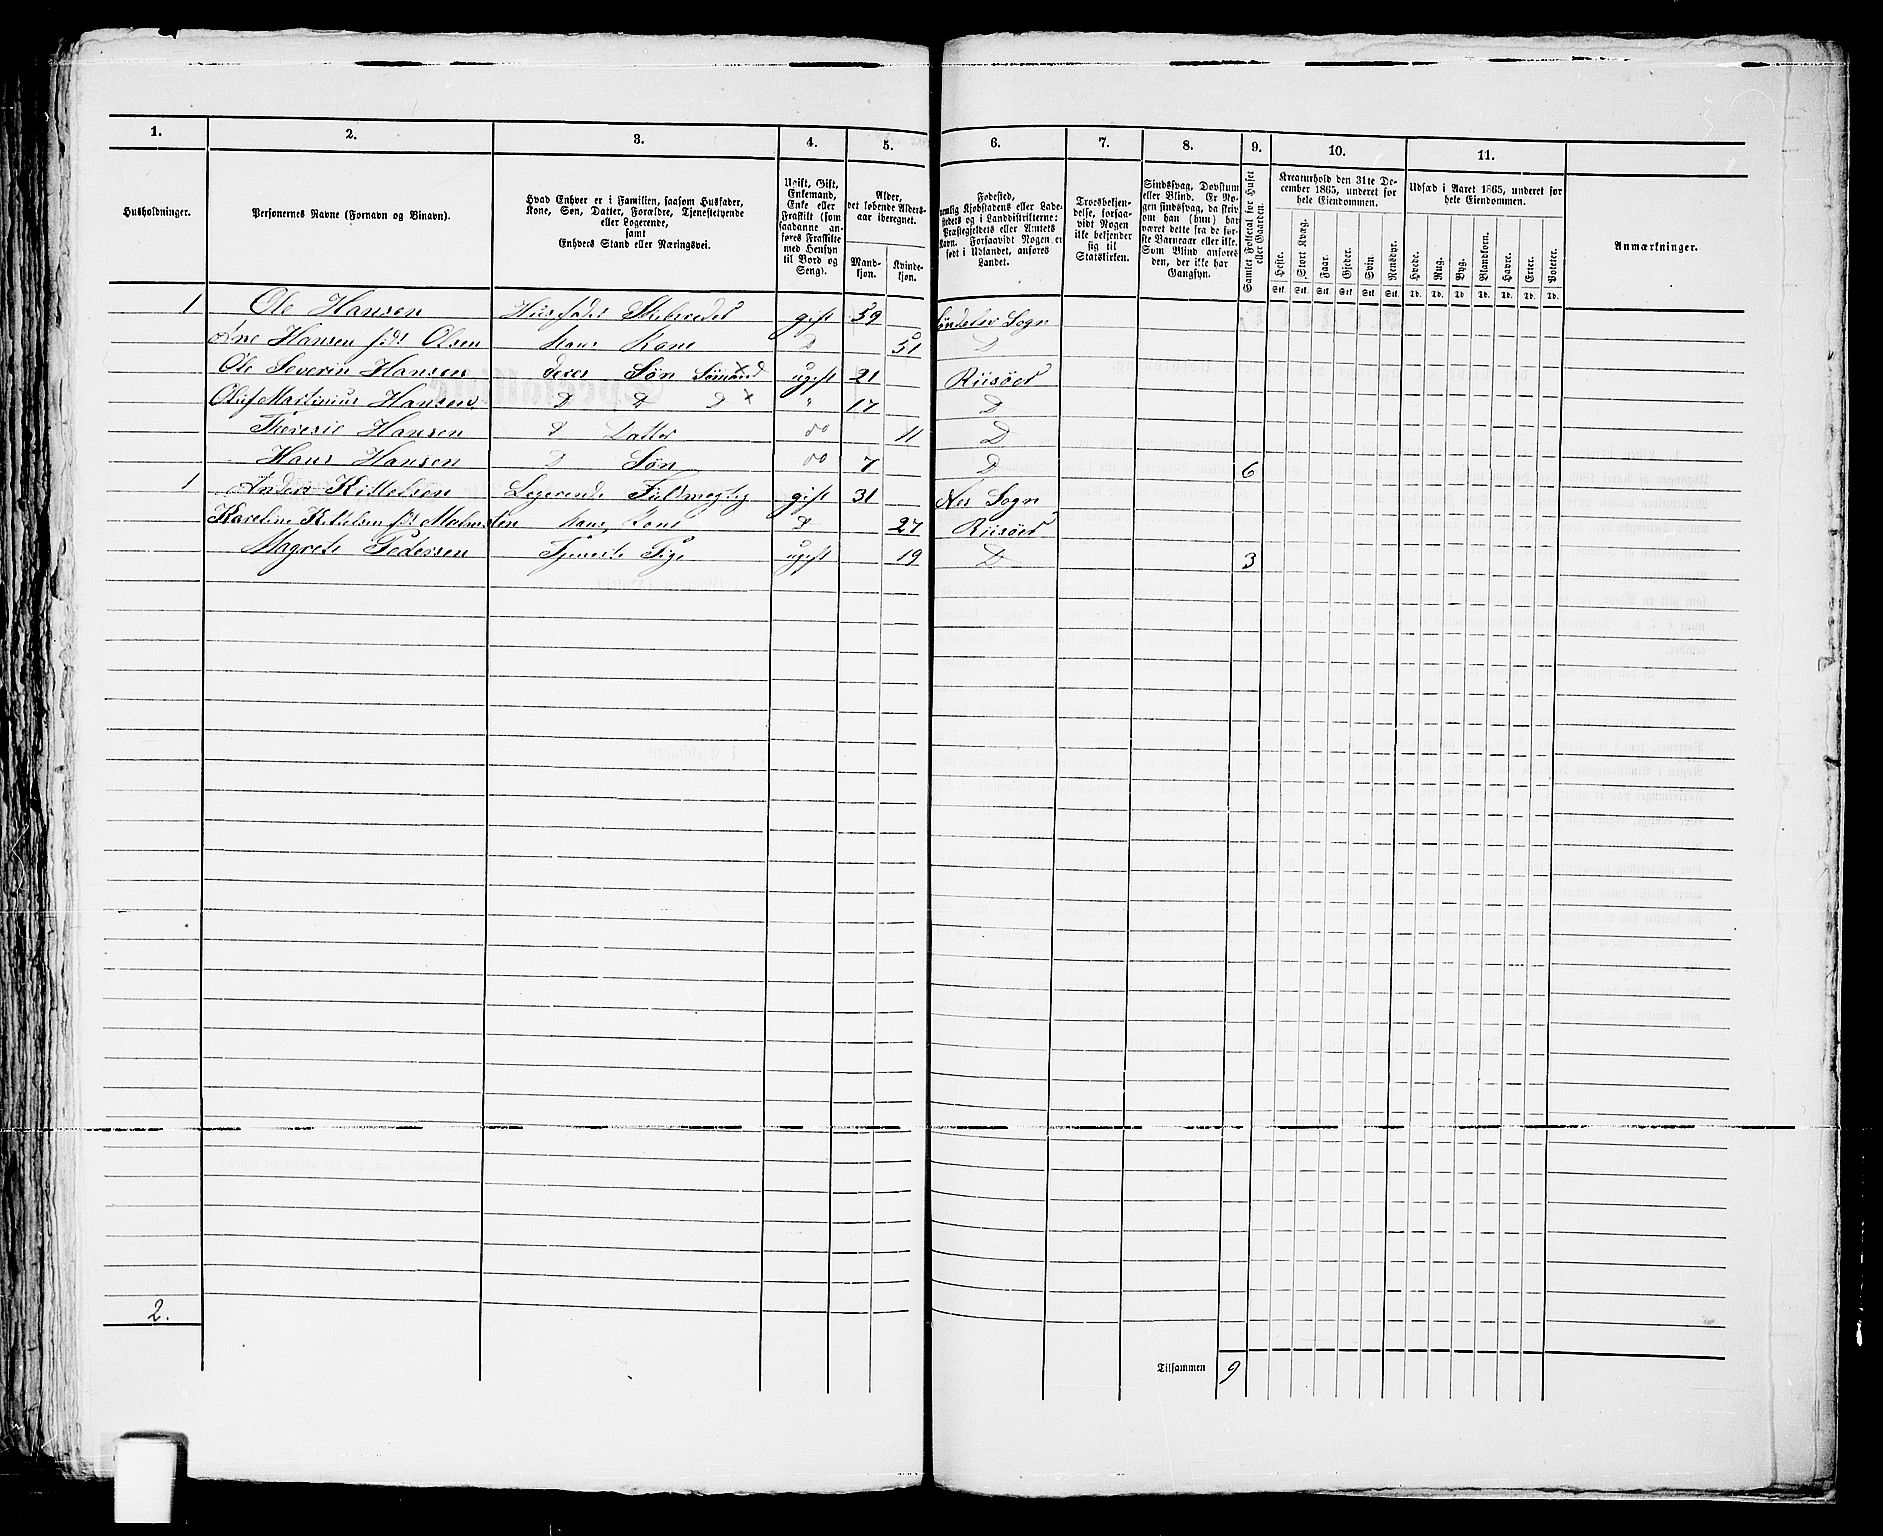 1. 2. 3. 4. 5. 6. 7. 8. 9. 10. 11.
Husholdninger.
Personernes Navne (Fornavn og Vinavn).
Hvad Enhver er i Familien, saasom Husfader,
Kone, Søn, Datter, Forældre, Tjenestetyende
eller Logerende,
samt
Enhvers Stand eller Næringsvei.
Ugift, Gift,
Enkemand,
Enke eller
Fraskilt (som
saadanne an-
føres Fraskilte
med Hensyn
til Bord og
Seng).
Alder,
det løbende Alders-
aar iberegnet.
Mand-
kjøn.
Kvinde-
kjøn.
Fødested,
nemlig Kjøbstadens eller Lade-
stedets og i Landdistrikterne:
Præstegjeldets eller Amtets
Navn. Forsaavidt Nogen er
født i Udlandet, anføres
Landet.
Troesbekjen-
delse, forsaa-
vidt Nogen
ikke bekjender
sig til
Statskirken.
Sindssvag, Døvstum
eller Blind. Er No-
gen sindssvag, da skriv
om han (hun) har
været dette fra de før-
ste Barneaar eller ikke.
Som Blind anføres
den, der ikke har
Gangsyn.
Samlet Folketal for Huset
eller Gaarden.
Kreaturhold den 31te De-
cember 1865, underet for
hele Eiendommen.
Heste. Stort Kvæg. Faar. Gjeder. Svin. Rensdyr.
Stk. Stk. Stk. Stk. Stk. Stk.
Udsæd i Aaret 1865, underet for
hele Eiendommen.
Hvede. Rug. Byg. Blandkorn. Havre. Erter. Poteter.
Td. Td. Td. Td. Td. Td. Td.
Anmærkninger.
1 Ole Hansen Husfader gift 59 Søndelev Sogn
Ane Hansen født Olsen hans Kone D 51 D
Ole Severin Hansen deres Søn Sømand ugift 21 Riisøer
Oluf Martinius Hansen D D D x " 17 D
Theresie Hansen D Datter do 11 D
Hans Hansen D Søn do 7 D 6
1 Anders Kittelsen Logerende Fuldmegtig gift 31 Nes Sogn
Kareline Kittelsen født Malmsten hans Kone D 27 Riisøer
Magrete Pedersen Tjeneste Pige ugift 19 D 3
2.
Tilsammen 9